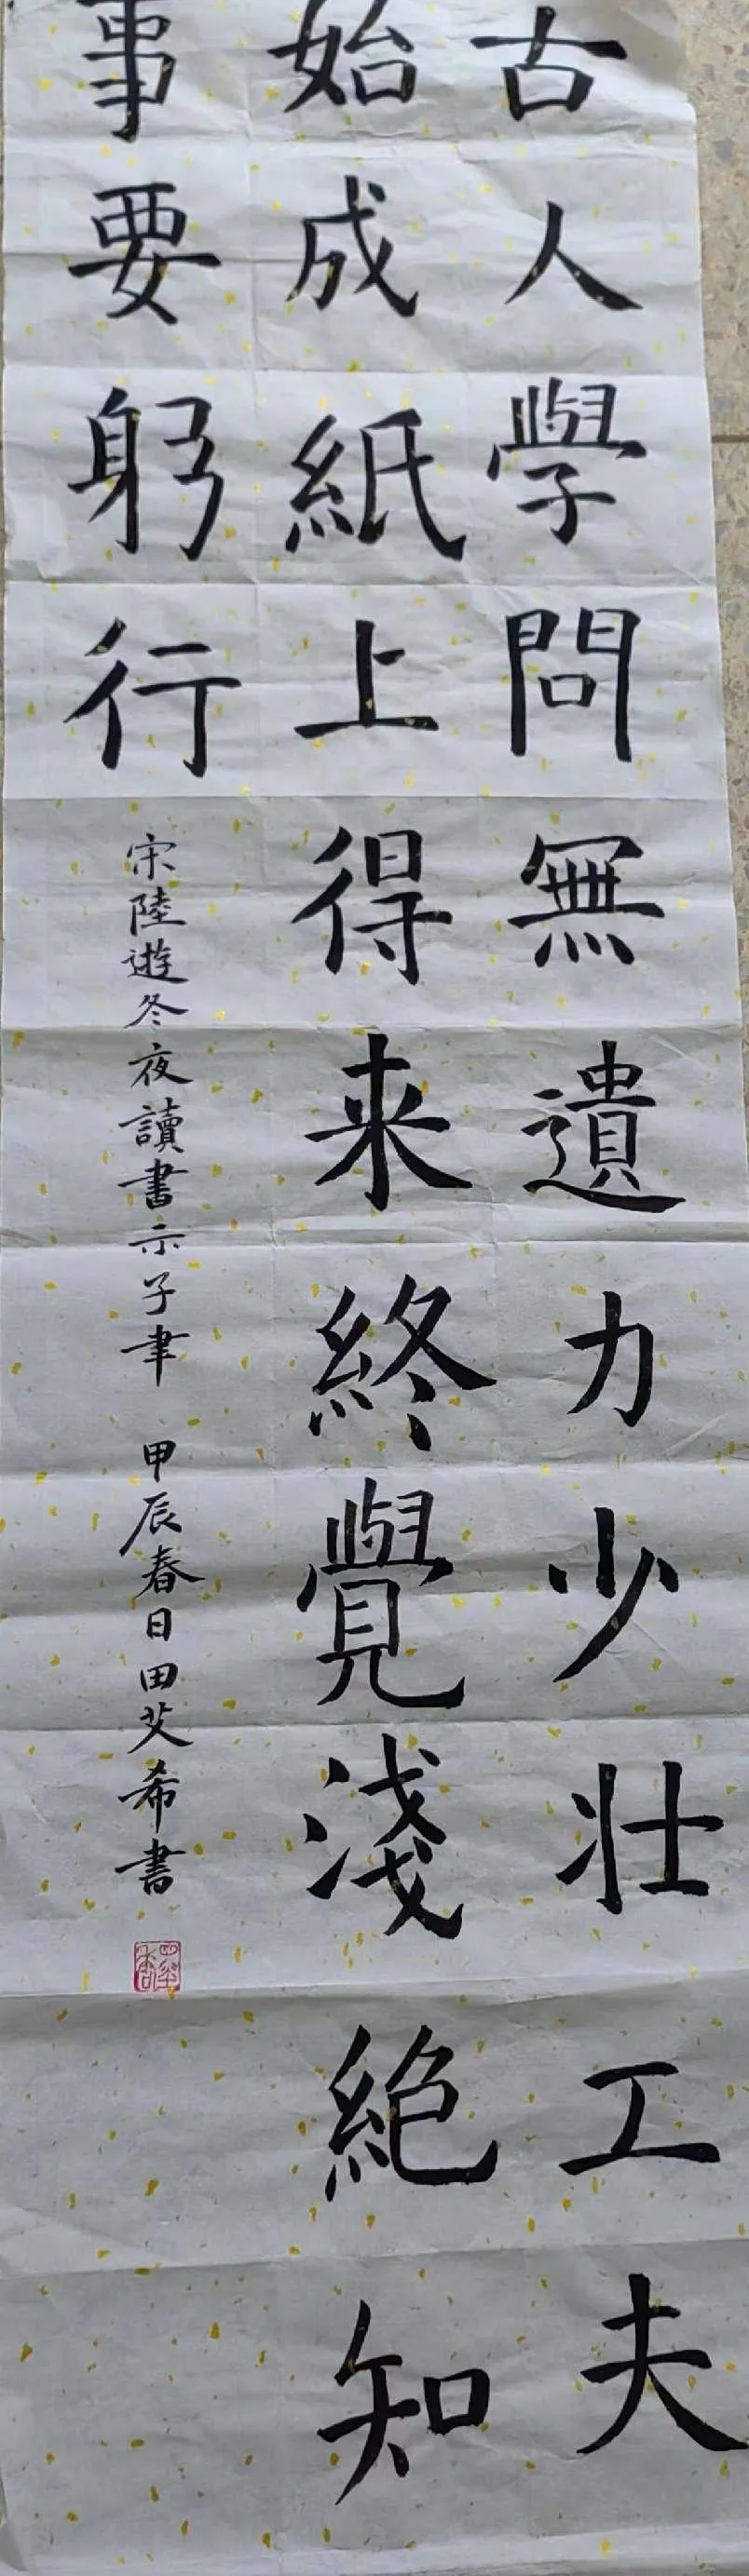 古人學問無遺力少壮工夫
始成紙上得来終覺淺絶知
事要躬行
宋陸遊冬夜讀書示子聿 甲辰春日田艾希書